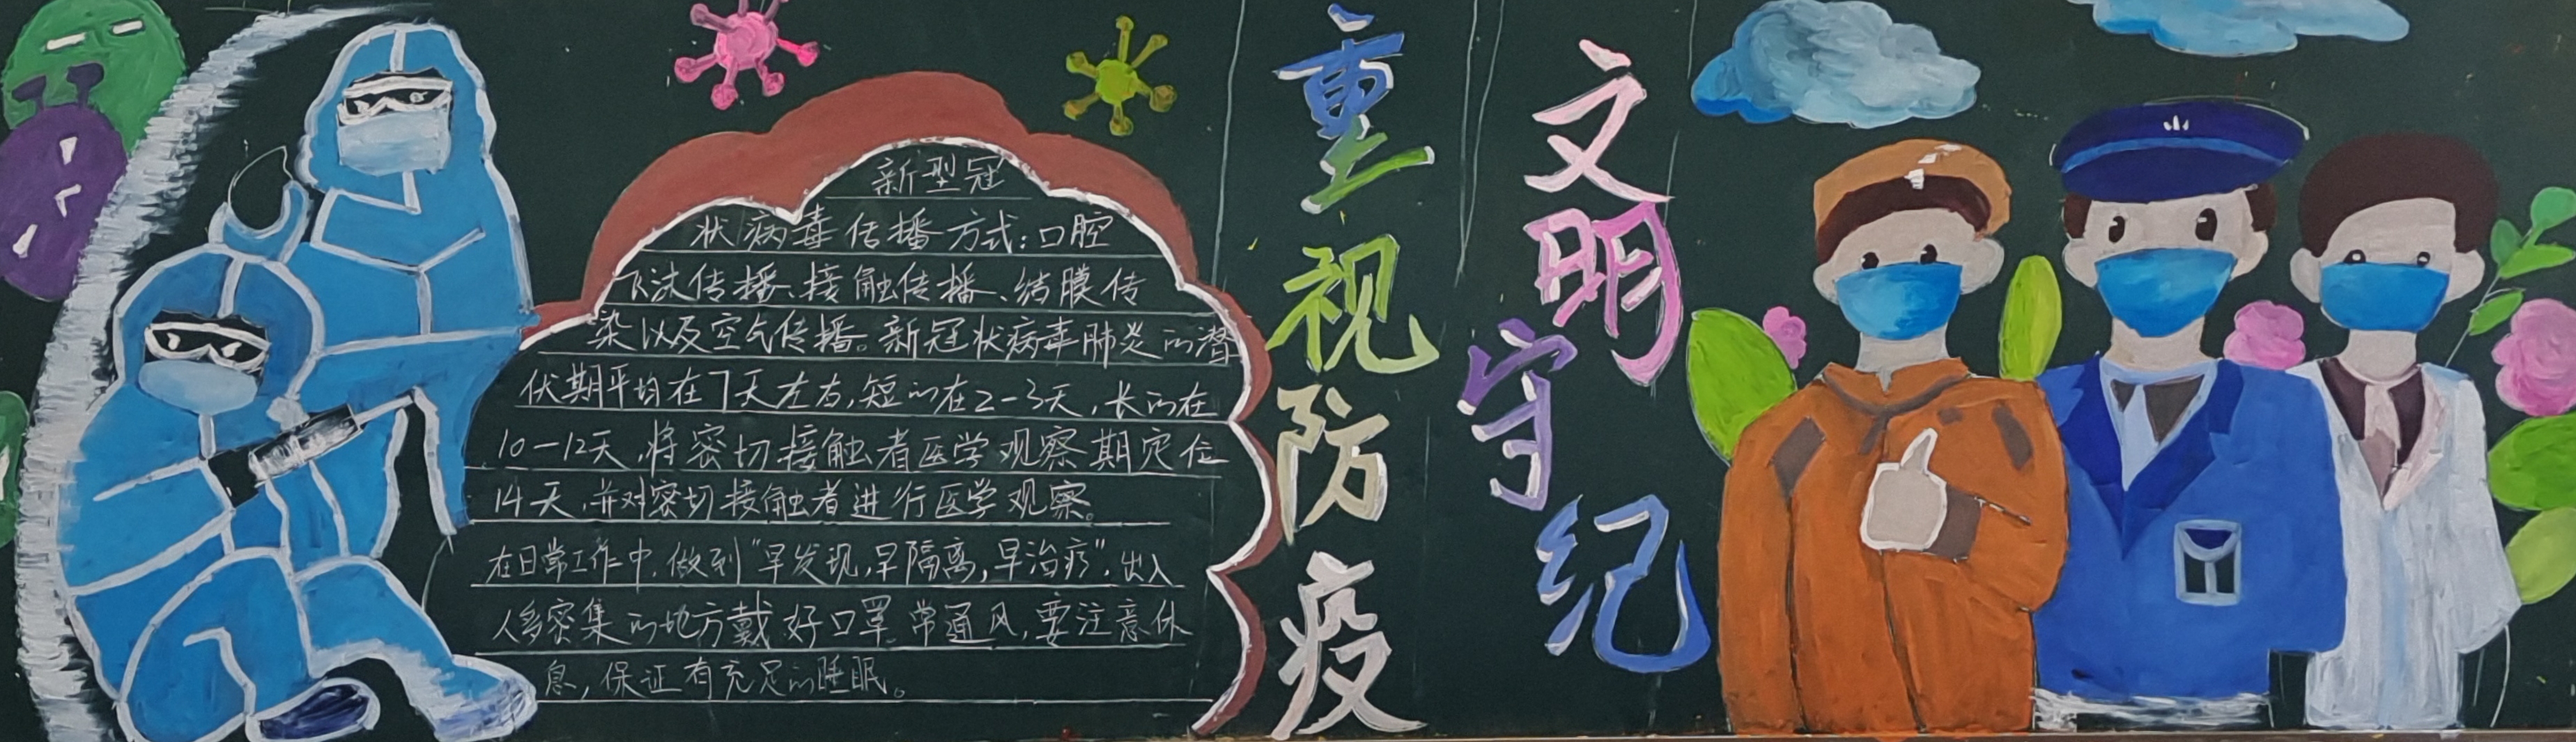 新型冠
状病毒传播方式：口腔
飞沫传播、接触传播、结膜传
染以及空气传播。新冠状病毒肺炎的潜
伏期平均在7天左右，短的在2-3天，长的在
10-12天，将密切接触者医学观察期定位
14天，并对密切接触者进行医学观察。
在日常工作中，做到“早发现，早隔离，早治疗”，出入
人多密集的地方戴好口罩。常通风，要注意休
息，保证有充足的睡眠。
重视防疫
文明守纪